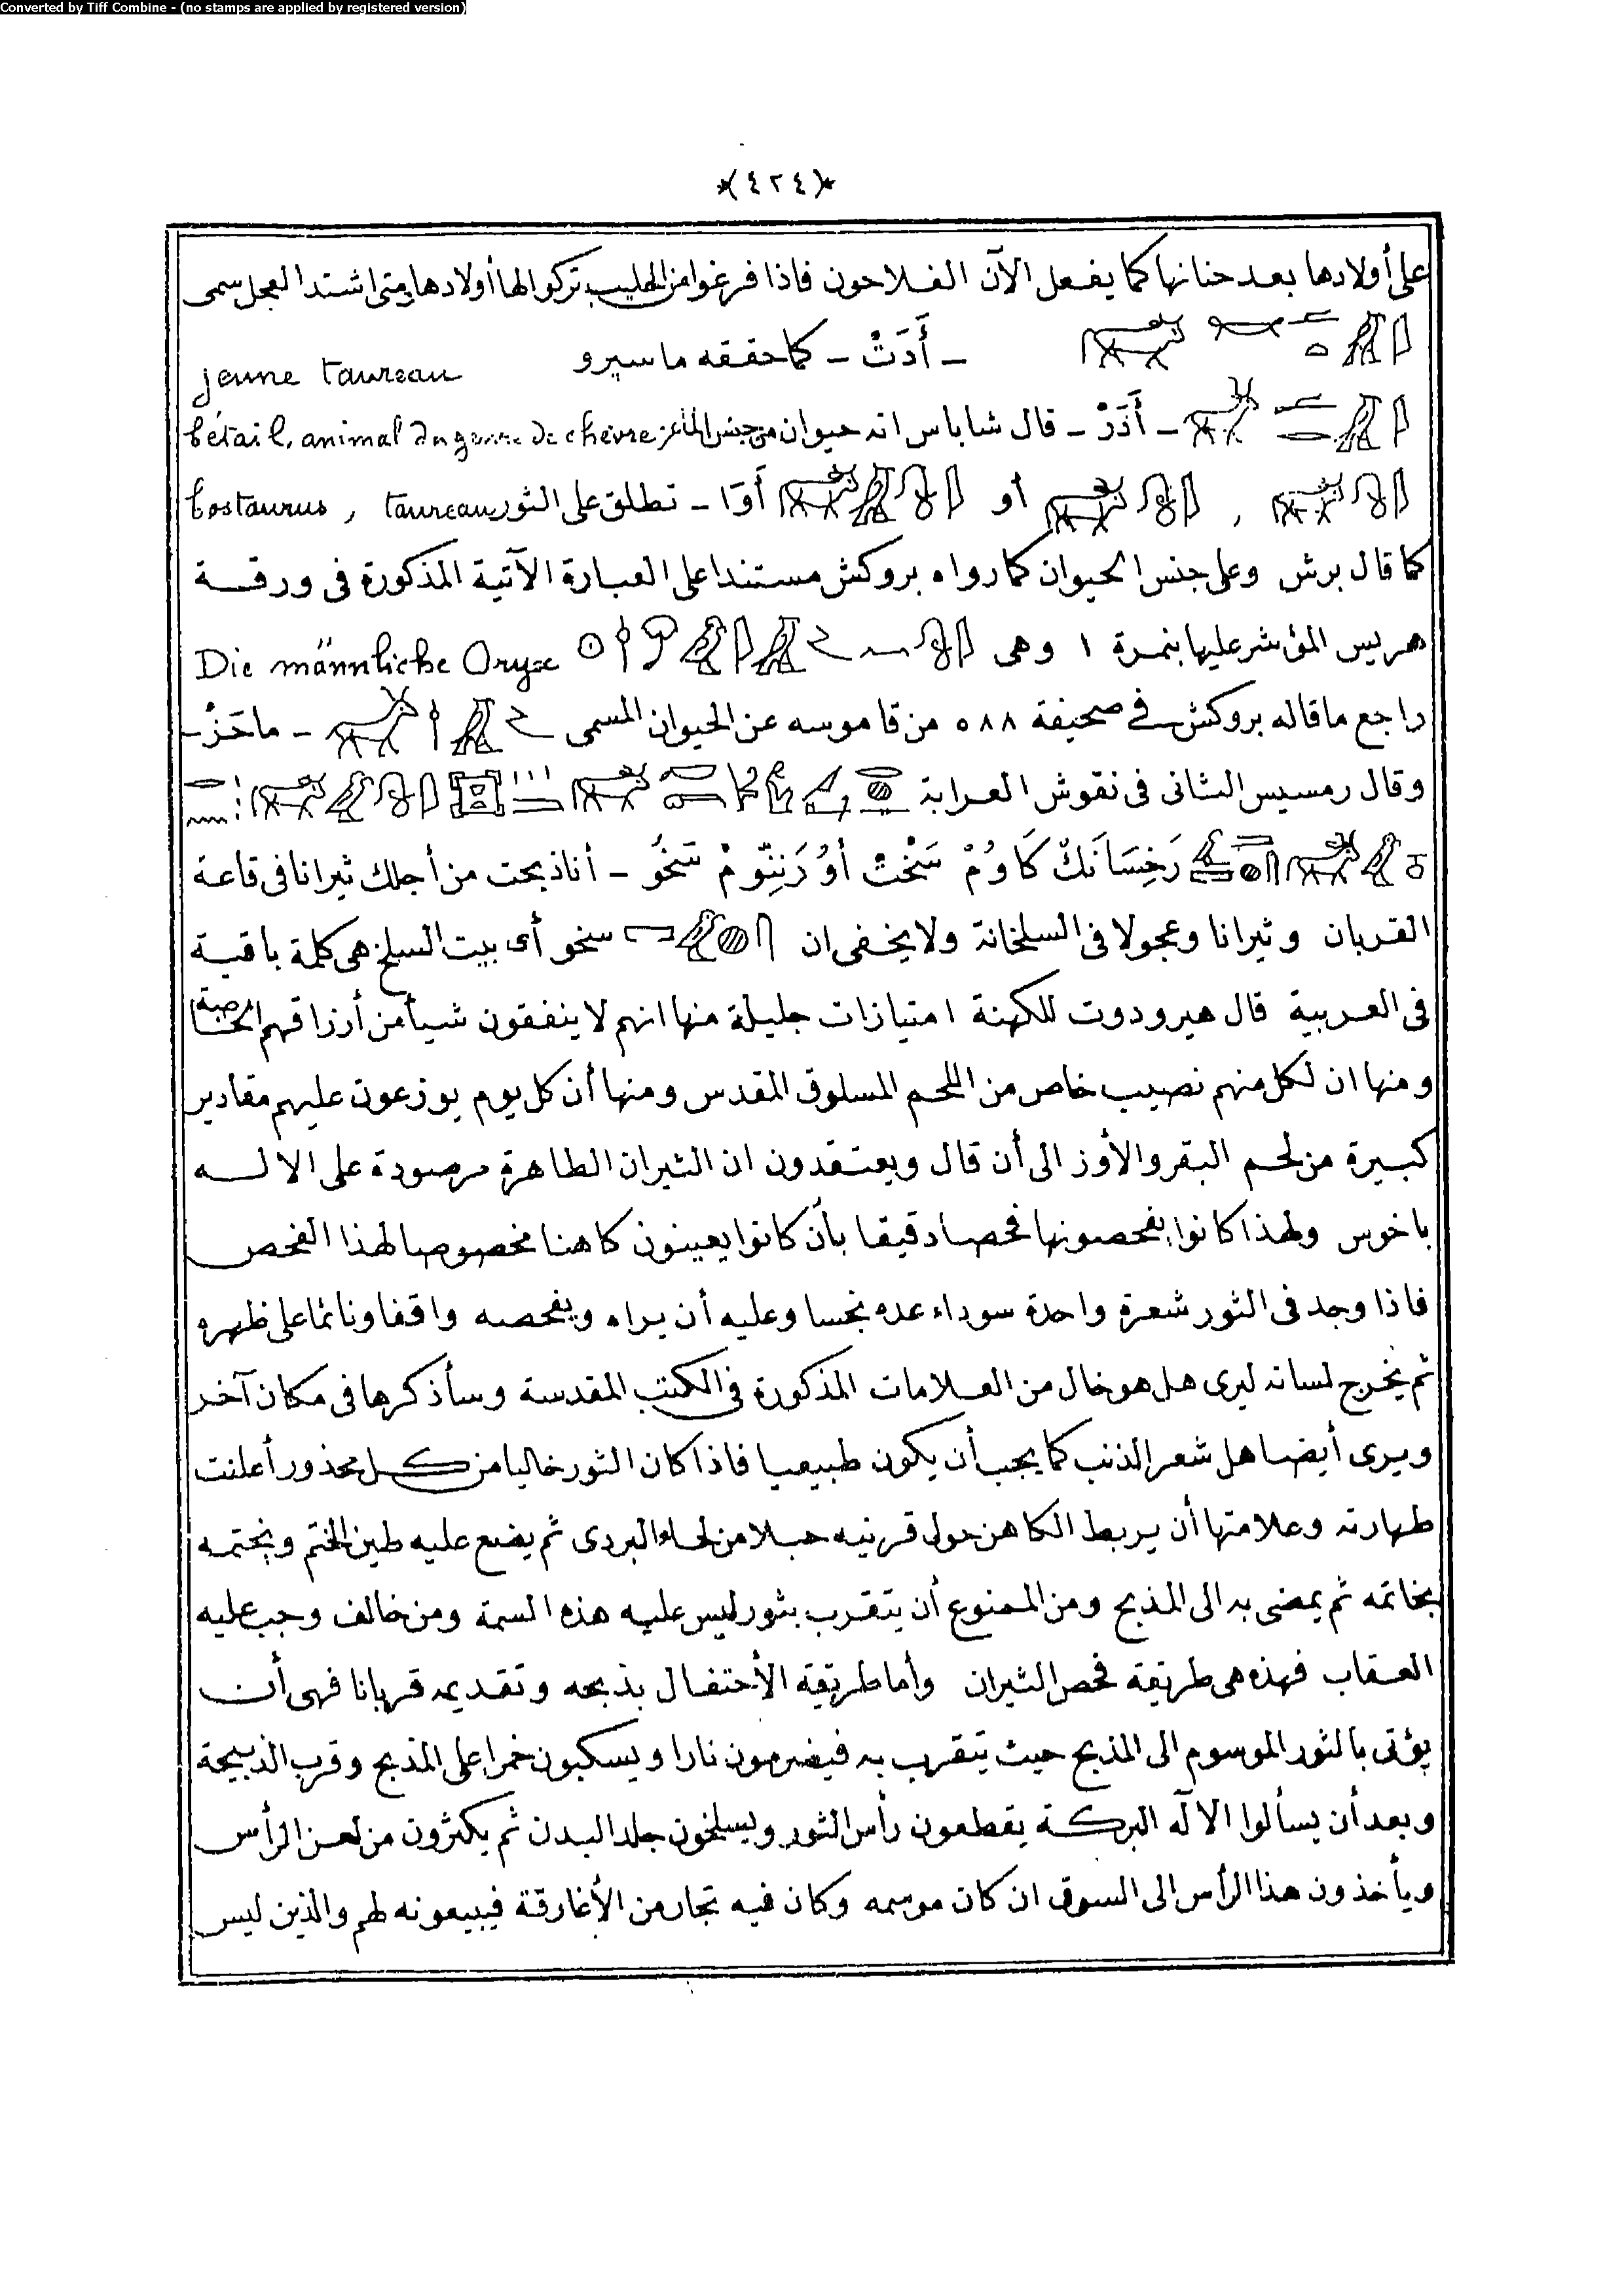 Converted by Tiff Combine - (no stamps are applied by registered version)
*(٤٢٤)*
على أولادها بعد حنانها كما يفعل الآن الفلاحون فاذا فرغوا من الحليب تركوا لها أولادها ومتى اشتد العجل سمى
ـ أَدَتْ ـ كما حققه ماسپرو jeune taureau
ـ أَدَرْ ـ قال شاباس انه حيوان من جنس الماعز bétail, animal du genre de chèvre
, أو أَوَا ـ تطلق على الثور bostaurus, taureau
كما قال برش وعلى جنس الحيوان كما رواه بروكش مستندا على العبارة الآتية المذكورة فى ورقة
هريس المؤشر عليها بنمرة ١ وهى Die männliche Oryx
راجع ما قاله بروكش فى صحيفة ٥٨٨ من قاموسه عن الحيوان المسمى ـ ماحَزْ ـ
وقال رمسيس الثانى فى نقوش العرابة
رَخِسَانَكْ كَاوُمْ سَخْتْ أوُ رَنِنّوِمْ سَخُو ـ أنا ذبحت من أجلك ثيرانا فى قاعة
القربان وثيرانا وعجولا فى السلخانة ولا يخفى ان سخو أى بيت السلخ هى كلمة باقية
فى العربية قال هيرودوت للكهنة امتيازات جليلة منها انهم لا ينفقون شيأ من أرزاقهم الخاصة
ومنها ان لكل منهم نصيب خاص من اللحم المسلوق المقدس ومنها أن كل يوم يوزعون عليهم مقادير
كبيرة من لحم البقر والأوز الى أن قال ويعتقدون ان الثيران الطاهرة مرصودة على الاله
باخوس ولهذا كانوا يفحصونها فحصا دقيقا بأن كانوا يعينون كاهنا مخصوصا لهذا الفحص
فاذا وجد فى الثور شعرة واحدة سوداء عده نجسا وعليه أن يراه ويفحصه واقفا ونائما على ظهره
ثم يخرج لسانه ليرى هل هو خال من العلامات المذكورة فى الكتب المقدسة وسأذكرها فى مكان آخر
ويرى أيضا هل شعر الذنب كما يجب أن يكون طبيعيا فاذا كان الثور خاليا من كل محذور أعلنت
طهارته وعلامتها أن يربط الكاهن حول قرنيه حبلا من لحاء البردى ثم يضع عليه طين الختم ويختمه
بخاتمه ثم يمضى به الى المذبح ومن الممنوع أن يتقرب بثور ليس عليه هذه السمة ومن خالف وجب عليه
العقاب فهذه هى طريقة فحص الثيران وأما طريقة الأحتفال بذبحه وتقديمه قربانا فهى أن
يؤتى بالثور الموسوم الى المذبح حيث يتقرب به فيضرمون نارا ويسكبون خمرا على المذبح وقرب الذبيحة
وبعد أن يسألوا الاله البركة يقطعون رأس الثور ويسلخون جلد البدن ثم يكثرون من لعن الرأس
ويأخذون هذا الرأس الى السوق ان كان موسمه وكان فيه تجار من الأغارقة فيبيعونه لهم والذين ليس